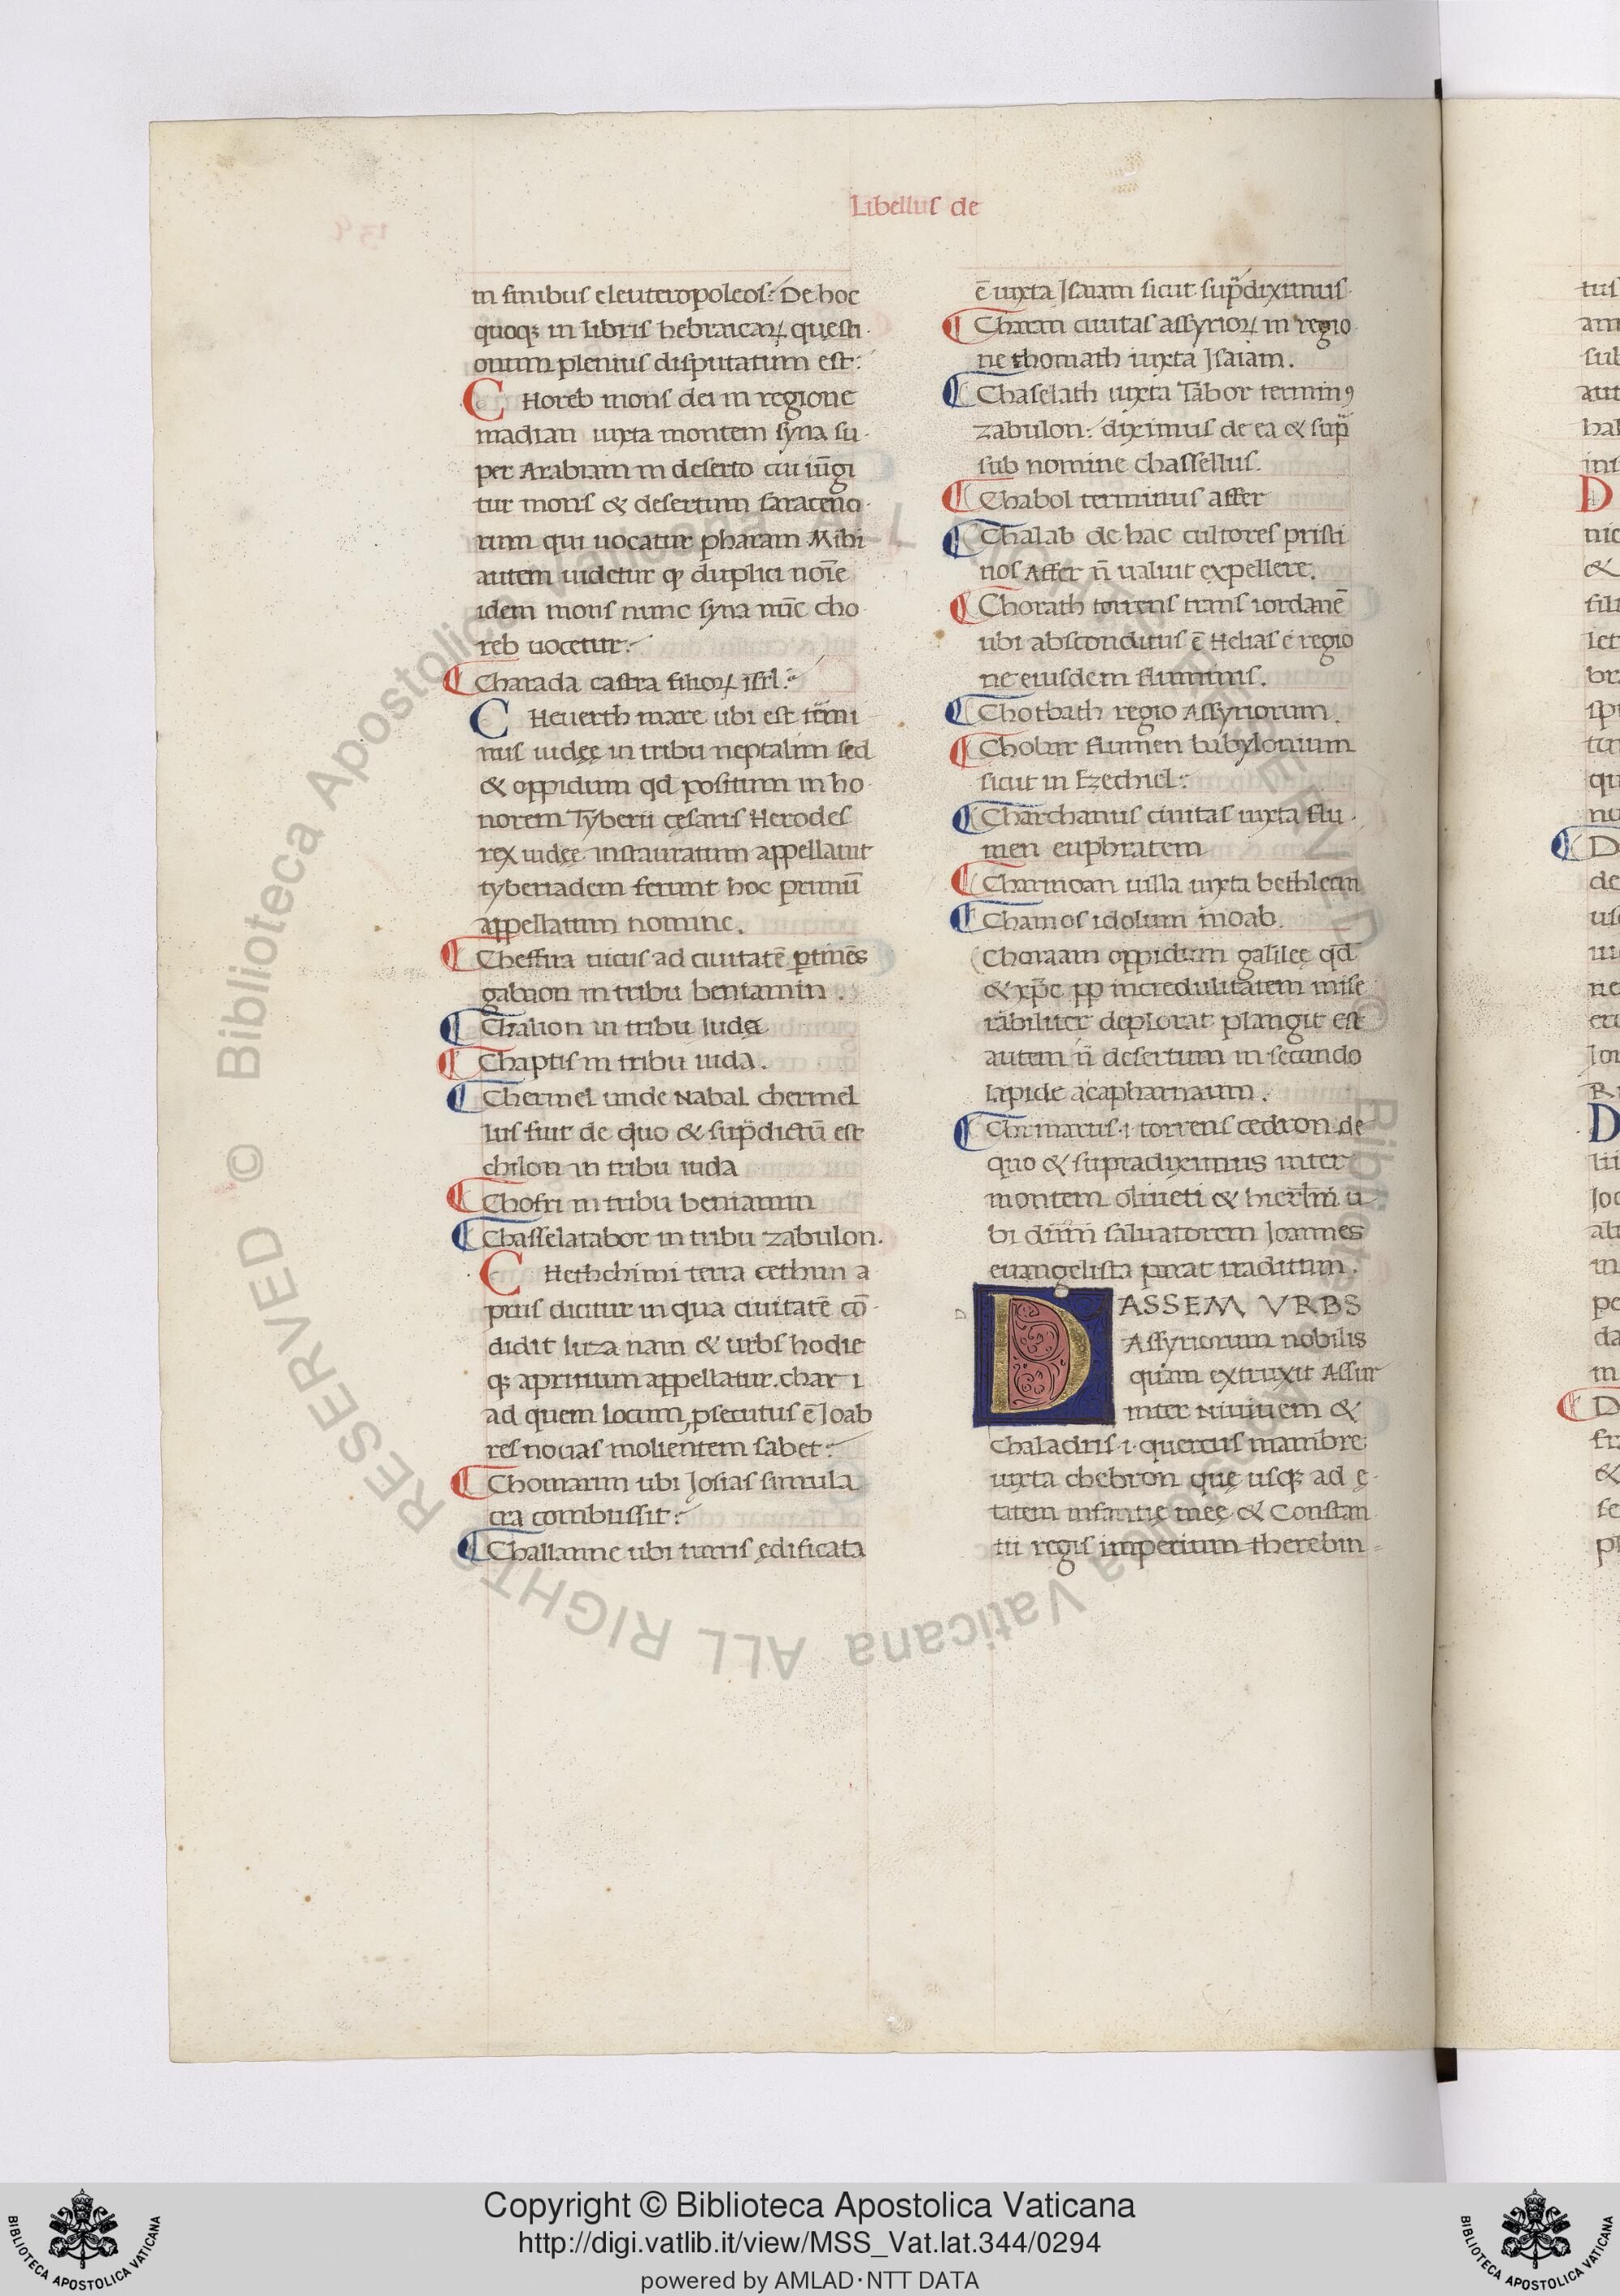 Libellus de
in finibus eleuteropoleos: De hoc
quoqꝫ in libris hebraicaꝝ questi
onum plenius disputatum est:
CHoreb mons dei in regione
madian iuxta montem syna su
per Arabiam in deserto cui iūgi
tur mons & desertum saraceno
rum qui uocatur pharam Mihi
autem uidetur ꝙ duplici noīe
idem mons nunc syna nūc cho
reb uocetur:
Charada castra filioꝝ isrl̄:
CHeuerth mare ubi est tēmi
nus iudęę in tribu neptalim sed
& oppidum qd̄ positum in ho
norem Tyberii cęsaris Herodes
rex iudęę instauratum appellauit
tyberiadem ferunt hoc primū
appellatum nomine.
Cheffira uicus ad ciuitatē ꝑtinēs
gabaon in tribu beniamin.
Chalion in tribu Iuda
Chaptis in tribu iuda.
Chermel unde Nabal chermel
lus fuit de quo & sup̄dictū est
chilon in tribu iuda
Chofri in tribu beniamin
Chasselatabor in tribu zabulon.
CHethchimi terra cethim a
prius dicitur in qua ciuitatē cō
didit luza nam & urbs hodie
qꝫ aprinum appellatur. char i
ad quem locum ꝓsecutus ē Joab
res nouas molientem sabet:
Chomarim ubi Josias simula
cra combussit:
Challanne ubi turris ędificata
ē iuxta Isaiam sicut sup̄diximus
Charan ciuitas assyrioꝝ in regio
ne thomath iuxta Isaiam.
Chaselath iuxta Tabor terminꝰ
zabulon: diximus de ea & sup̄
sub nomine chassellus.
Chabol terminus asser
Chalab de hac cultores pristi
nos Asser n̄ ualuit expellere.
Chorath torrens trans iordanē
ubi absconditus ē Helias ē regio
ne eiusdem fluminis.
Chotbath regio Assyriorum.
Chobar flumen babylonium
sicut in Ezechiel:
Charchamis ciuitas iuxta flu
men euphratem
Charmoan uilla iuxta bethleem
Chamos idolum moab.
Choraam oppidum galileę qd̄
& xp̄c pp incredulitatem mise
rabiliter deplorat plangit est
autem n̄ desertum in secundo
lapide a capharnaum.
Chimarus .i. torrens cedron de
quo & supradiximus inter
montem oliueti & hierlm̄ u
bi dn̄m saluatorem Joannes
euangelista parat traditum.
DASSEM VRBS
Assyriorum nobilis
quam extruxit Assur
inter Niniuem &
chaladris .i. quercus mambre
iuxta chebron quę usqꝫ ad ę
tatem infantię męę & Constan
tii regis imperium therebin
Copyright © Biblioteca Apostolica Vaticana
http://digi.vatlib.it/view/MSS_Vat.lat.344/0294
powered by AMLAD·NTT DATA